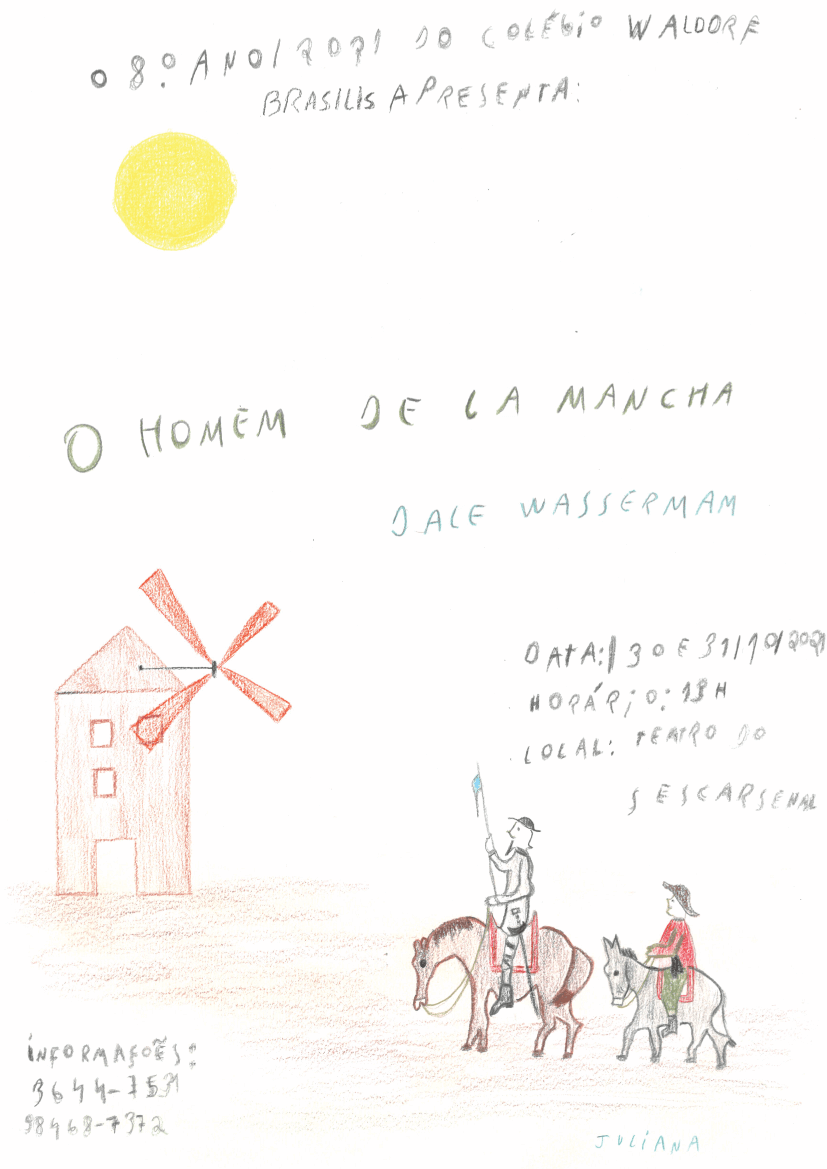 O 8.º ANO/2021 DO COLÉGIO WALDORF
BRASILIS APRESENTA:
O HOMEM DE LA MANCHA
DALE WASSERMAM
DATA: 30 E 31/10/2021
HORÁRIO: 19H
LOCAL: TEATRO DO
SESCARSENAL
INFORMAÇOẼS:
3644-7531
98468-7372
JULIANA